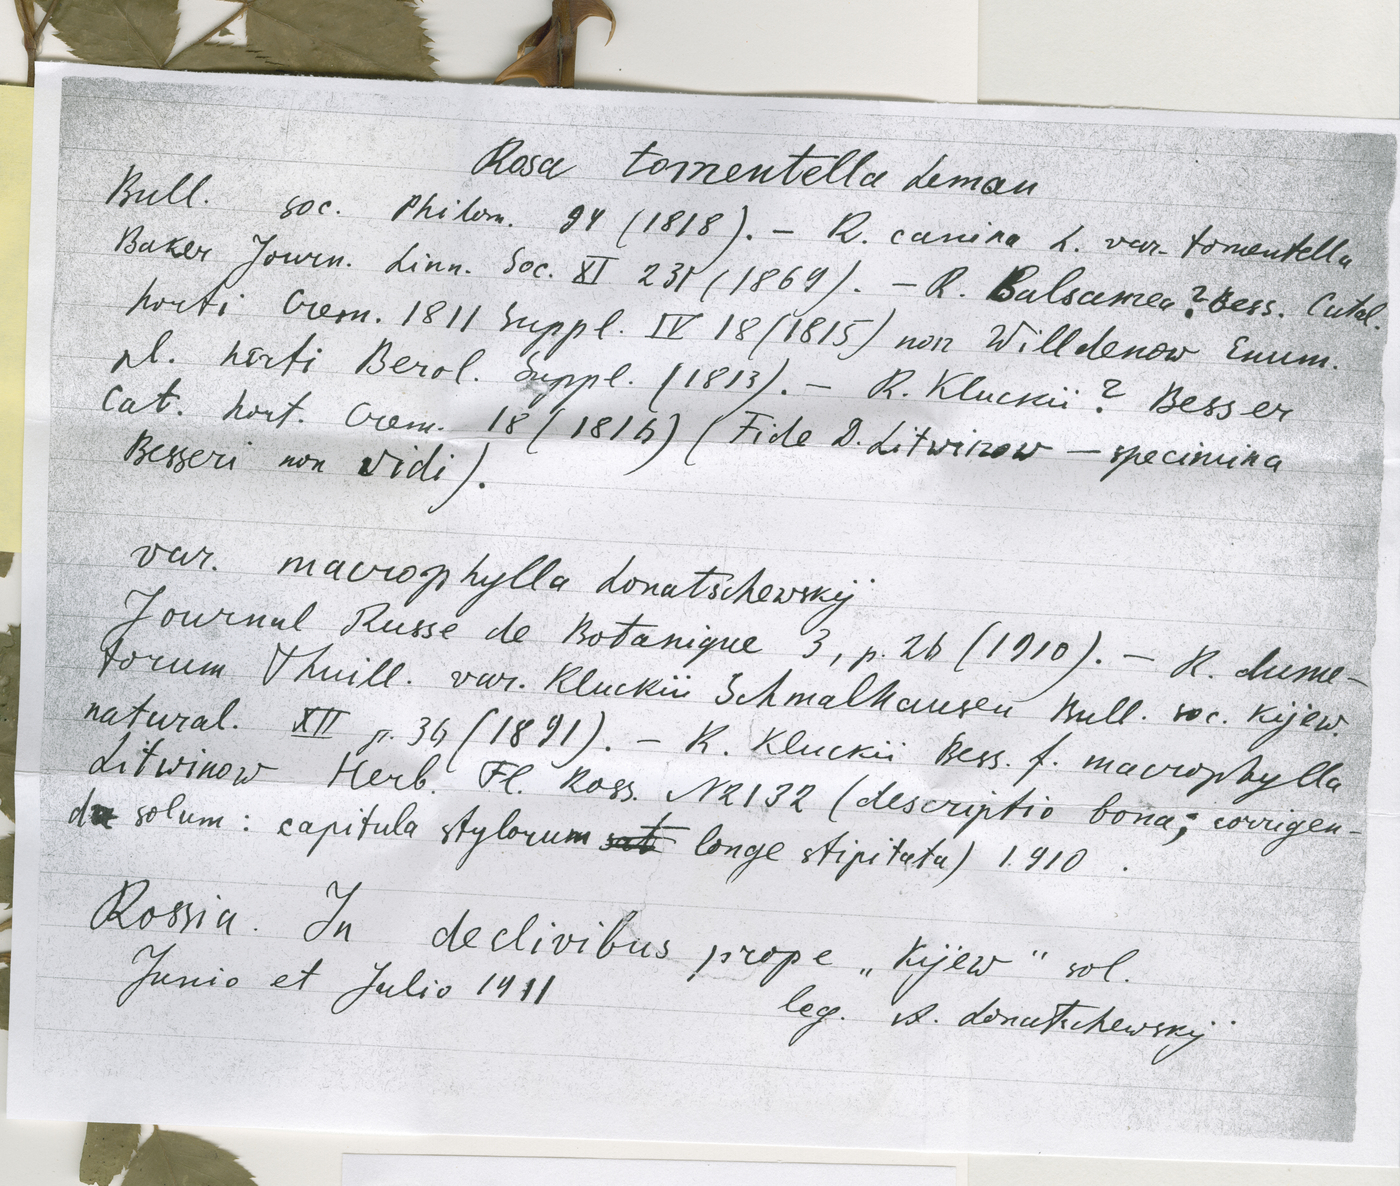 Rosa tomentella Leman
Bull. soc. Philom. 94 (1818). – R. canina L. var. tomentella
Baker Journ. Linn. Soc. XI 231 (1869). – R. Balsamea? Bess. Catal.
horti Crem. 1811 Suppl. IV 18 (1815) non Willdenow Enum.
pl. horti Berol. Suppl. (1813). – R. Kluckii? Besser
Cat. hort. Crem. 18 (1816) (Fide D. Litwinow – specimina
Besseri non vidi).
var. macrophylla Lonatschewskij
Journal Russe de Botanique 3, p. 26 (1910). – R. dume-
torum Thuill. var. Kluckii Schmalhausen Bull. soc. Kijew.
natural. XII p. 36 (1891). – R. Kluckii Bess. f. macrophylla
Litwinow Herb. Fl. Ross. N2132 (descriptio bona; corrigen-
da solum: capitula stylorum longe stipitata) 1910.
Rossia. In declivibus prope „Kijew" sol.
Junio et Julio 1911
leg. A. Lonatschewskij